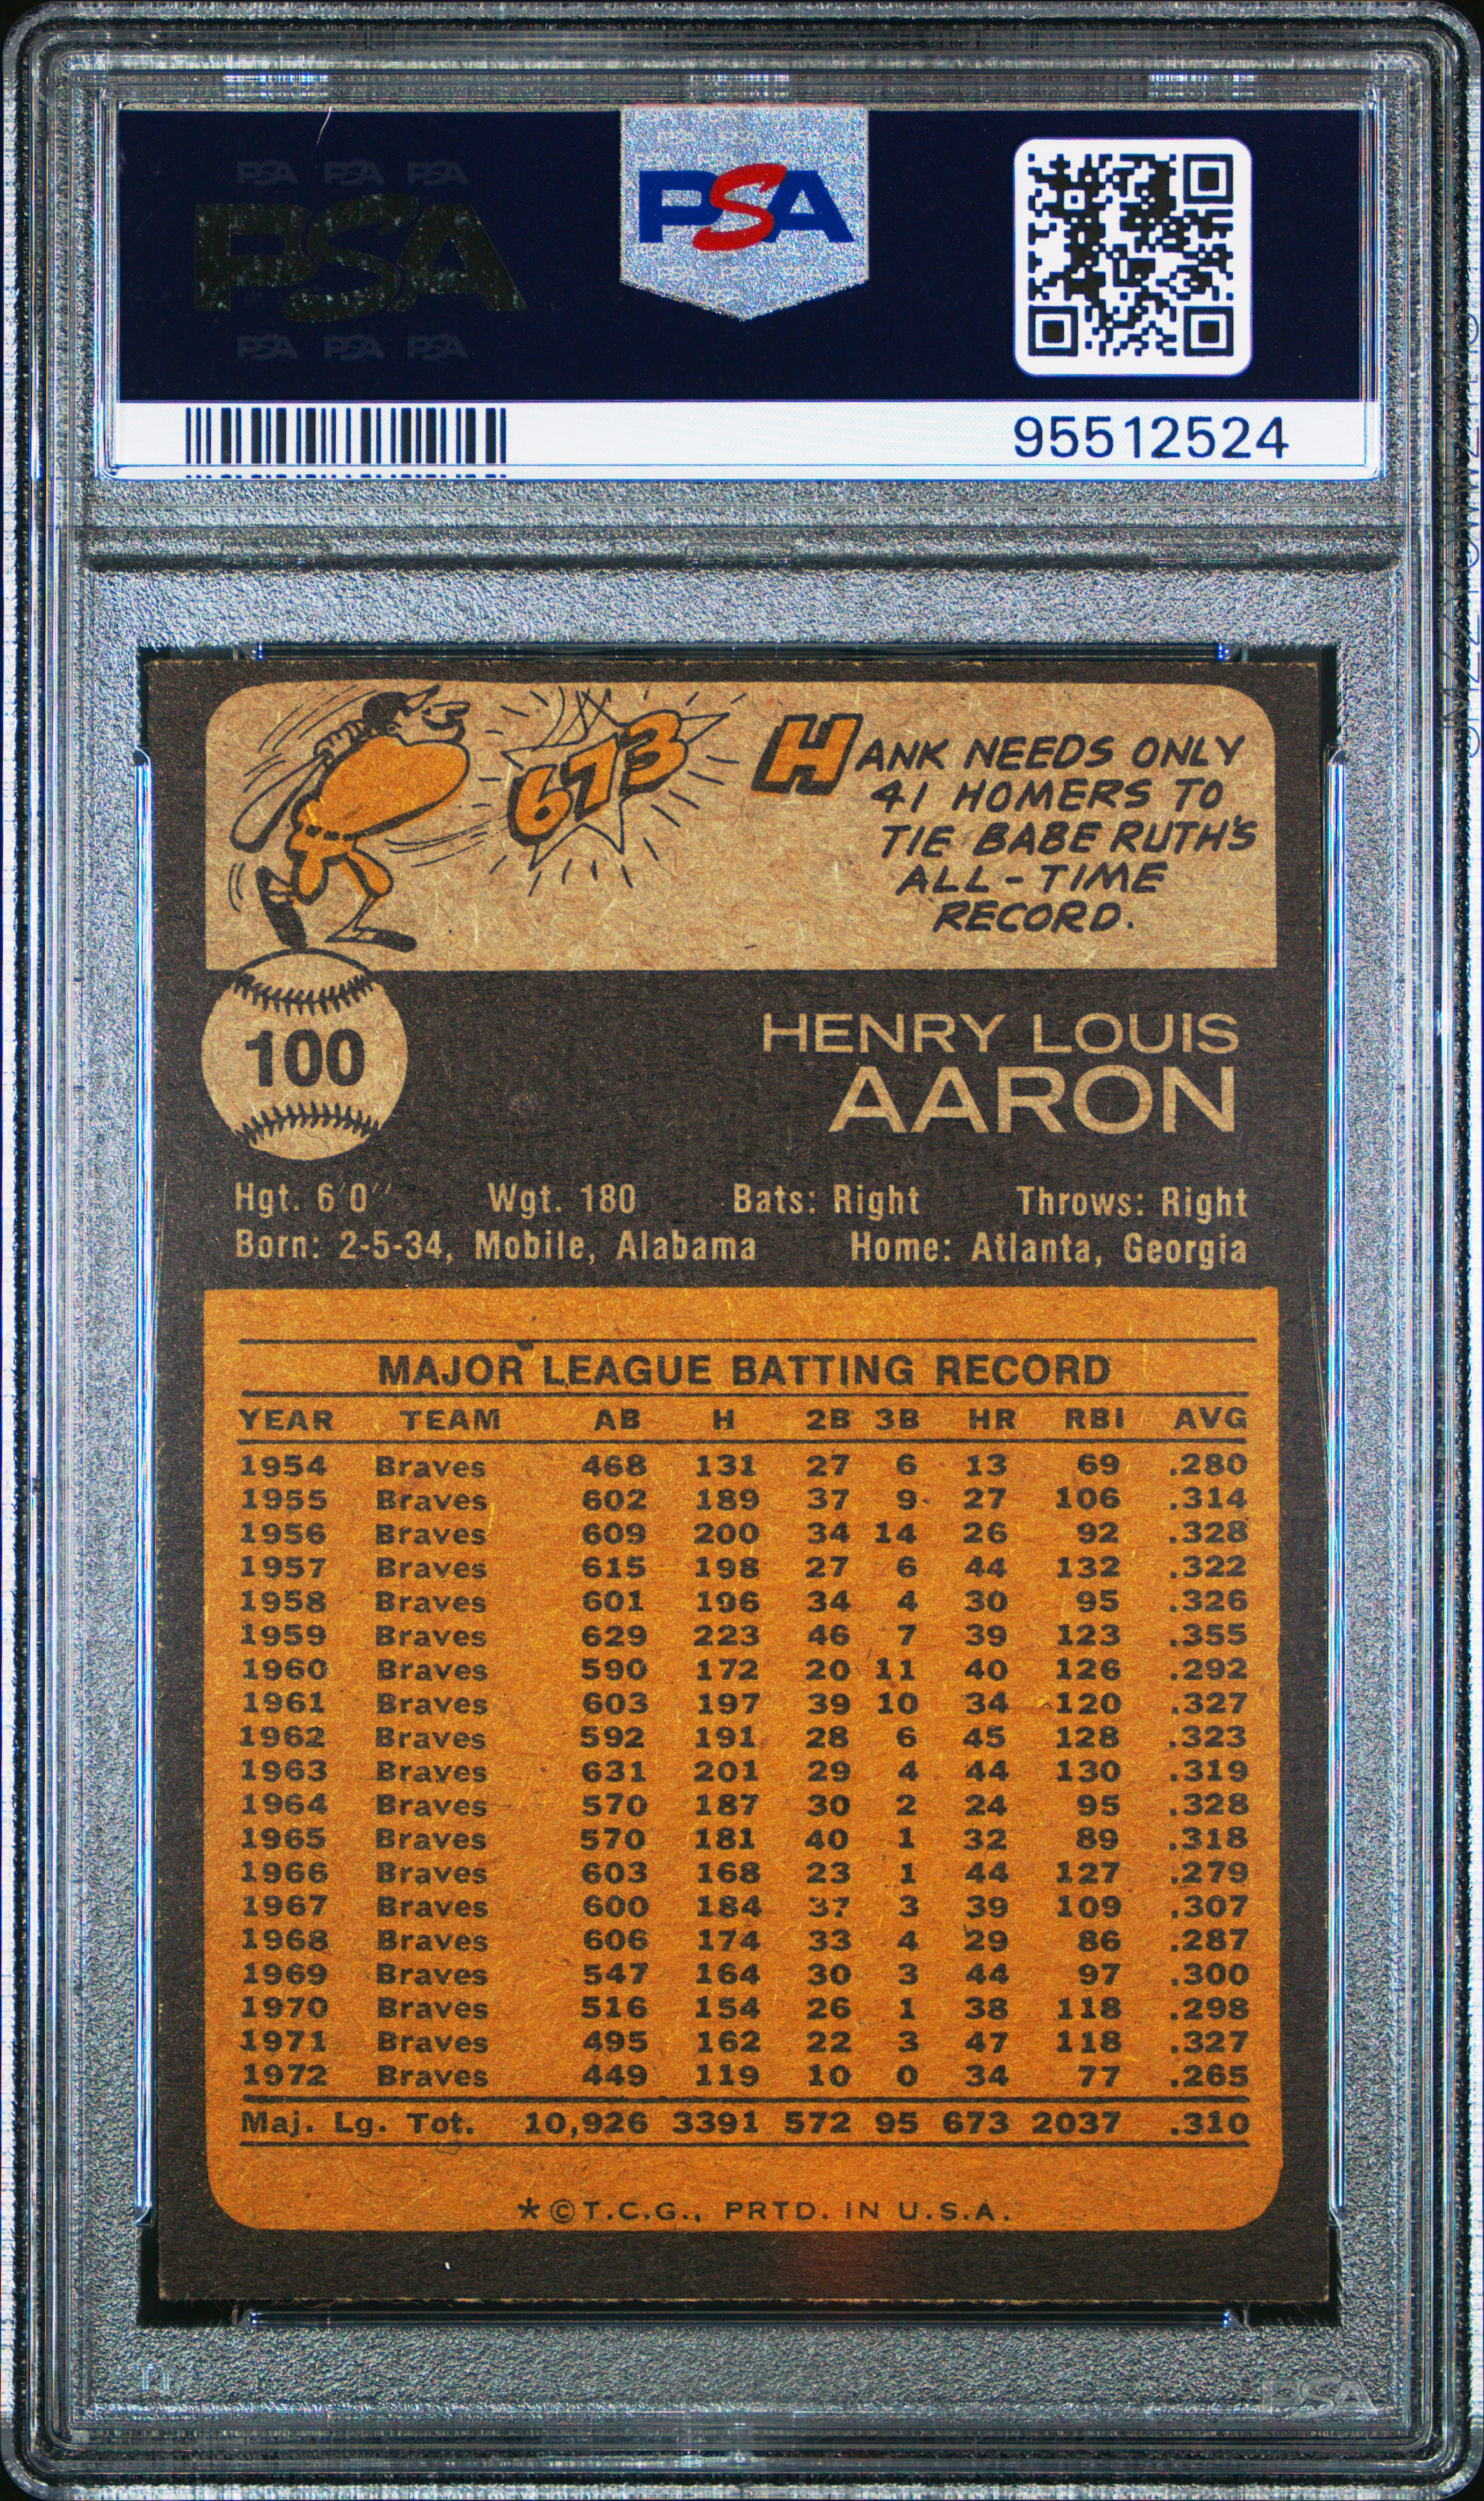 PSA PSA PSA
PSA
PSA PSA PSA
PSA
95512524
673
HANK NEEDS ONLY
41 HOMERS TO
TIE BABE RUTH'S
ALL-TIME
RECORD.
100
HENRY LOUIS
AARON
Hgt. 6'0" Wgt. 180 Bats: Right Throws: Right
Born: 2-5-34, Mobile, Alabama Home: Atlanta, Georgia
MAJOR LEAGUE BATTING RECORD
YEAR TEAM AB H 2B 3B HR RBI AVG
1954 Braves 468 131 27 6 13 69 .280
1955 Braves 602 189 37 9 27 106 .314
1956 Braves 609 200 34 14 26 92 .328
1957 Braves 615 198 27 6 44 132 .322
1958 Braves 601 196 34 4 30 95 .326
1959 Braves 629 223 46 7 39 123 .355
1960 Braves 590 172 20 11 40 126 .292
1961 Braves 603 197 39 10 34 120 .327
1962 Braves 592 191 28 6 45 128 .323
1963 Braves 631 201 29 4 44 130 .319
1964 Braves 570 187 30 2 24 95 .328
1965 Braves 570 181 40 1 32 89 .318
1966 Braves 603 168 23 1 44 127 .279
1967 Braves 600 184 37 3 39 109 .307
1968 Braves 606 174 33 4 29 86 .287
1969 Braves 547 164 30 3 44 97 .300
1970 Braves 516 154 26 1 38 118 .298
1971 Braves 495 162 22 3 47 118 .327
1972 Braves 449 119 10 0 34 77 .265
Maj. Lg. Tot. 10,926 3391 572 95 673 2037 .310
*©T.C.G., PRTD. IN U.S.A.
PSA